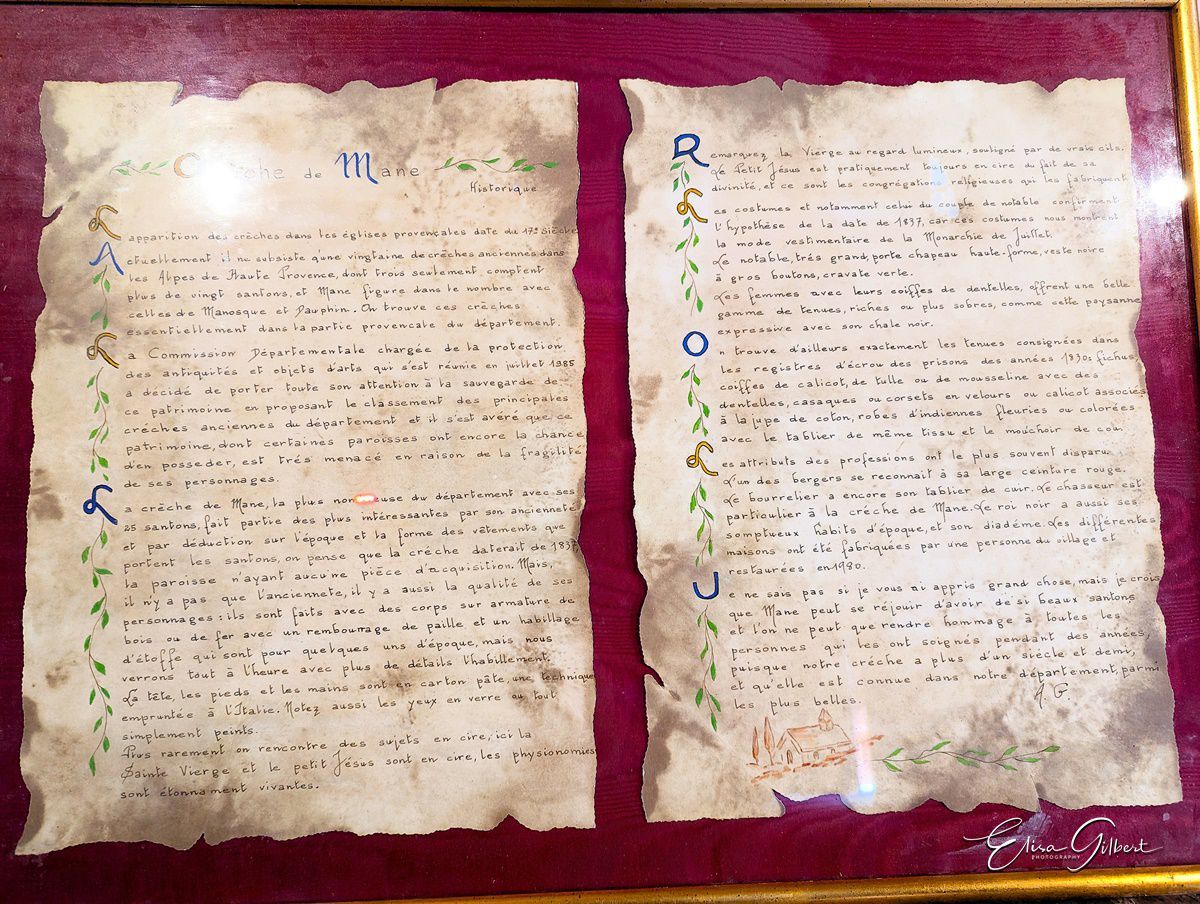 Crèche de Mane
Historique
L'apparition des crèches dans les églises provençales date du 17e siècle
Actuellement il ne subsiste qu'une vingtaine de crèches anciennes dans
les Alpes de Haute Provence, dont trois seulement, comptent
plus de vingt santons, et Mane figure dans le nombre avec
celles de Manosque et Dauphin. On trouve ces crèches
essentiellement dans la partie provençale du département.
La Commission Départementale chargée de la protection
des antiquités et objets d'arts qui s'est réunie en juillet 1985
a décidé de porter toute son attention à la sauvegarde de
ce patrimoine en proposant le classement des principales
crèches anciennes du département et il s'est avéré que ce
patrimoine, dont certaines paroisses ont encore la chance
d'en posseder, est trés menacé en raison de la fragilité
de ses personnages.
La crèche de Mane, la plus nombreuse du département avec ses
santons, fait partie des plus intéressantes par son ancienneté
et par déduction sur l'époque et la forme des vêtements que
portent les santons, on pense que la crèche daterait de 1837,
la paroisse n'ayant aucune pièce d'acquisition. Mais,
il n'y a pas que l'ancienneté, il y a aussi la qualité de ses
personnages : ils sont faits avec des corps sur armature de
bois ou de fer avec un rembourrage de paille, et un habillage
d'étoffe qui sont pour quelques uns d'époque, mais nous
verrons tout à l'heure avec plus de détails l'habillement.
La tête, les pieds et les mains sont en carton pâte, une technique
empruntée à l'Italie. Notez aussi les yeux en verre ou tout
simplement peints.
Plus rarement on rencontre des sujets en cire, ici la
Sainte Vierge et le petit Jésus sont en cire, les physionomies
sont étonnament vivantes.
Remarquez la Vierge au regard lumineux, souligné par de vrais cils.
Le Petit Jésus est pratiquement toujours en cire du fait de sa
divinité, et ce sont les congrégations religieuses qui les fabriquent
Les costumes et notamment celui du couple de notable confirment
l'hypothèse de la date de 1837, car ces costumes nous montrent
la mode vestimentaire de la Monarchie de Juillet.
Le notable, trés grand, porte chapeau haute-forme, veste noire
à gros boutons, cravate verte.
Les femmes avec leurs coiffes de dentelles, offrent une belle
gamme de tenues, riches ou plus sobres, comme cette paysanne
expressive avec son chale noir.
On trouve d'ailleurs exactement les tenues consignées dans
les registres d'écrou des prisons des années 1830: fichus,
coiffes de calicot, de tulle ou de mousseline avec des
dentelles, casaques ou corsets en velours ou calicot associés
à la jupe de coton, robes d'indiennes fleuries ou colorées
avec le tablier de même tissu et le mouchoir de cou
Les attributs des professions ont le plus souvent disparu.
L'un des bergers se reconnait à sa large ceinture rouge.
Le bourrelier a encore son tablier de cuir. Le chasseur est
particulier à la crèche de Mane. Le roi noir a aussi ses
somptueux habits d'époque, et son diadéme. Les différentes
maisons ont été fabriquées par une personne du village et
restaurées en 1980.
Je ne sais pas si je vous ai appris grand chose, mais je crois
que Mane peut se réjouir d'avoir de si beaux santons
et l'on ne peut que rendre hommage à toutes les
personnes qui les ont soignés pendant des années,
puisque notre crèche a plus d'un siècle et demi,
et qu'elle est connue dans notre département, parmi
les plus belles.
Elisa Gilbert
PHOTOGRAPHY